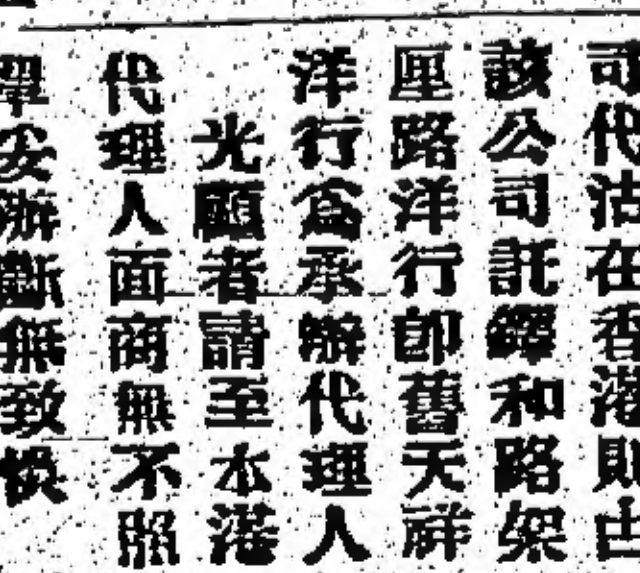 司代沽在香港則由
該公司託鐸和路架
厘路洋行即舊天祥
洋行爲承辦代理人
光顧者請至本港
代理人面商無不照
妥辦斷無致悞